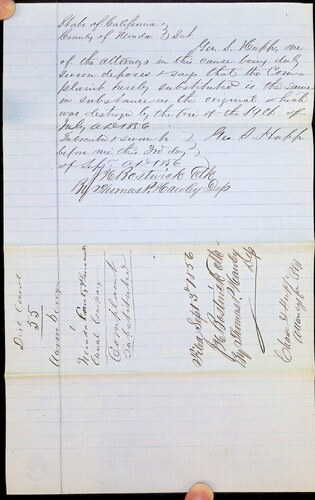 State of California }
County of Nevada } SS.
Geo. S. Hupp, one
of the Attorneys in this cause being duly
sworn deposes & says that the Com-
plaint hereby substituted is the same
in substance as the original which
was destroyed by the fire of the 19th of
July A.D. 1856
Subscribed & sworn to } Geo. S. Hupp
before me this 3rd day }
of Sept. A.D. 1856
Bostwick Clk
By Thomas P. Hawley Dp
Dist Court
55
Aaron
vs
Nevada County
Canal Company
Complaint
substituted
Filed Sept 3rd 1856
Bostwick Clk
By Thomas P. Hawley
Dep
Attorneys for Plff